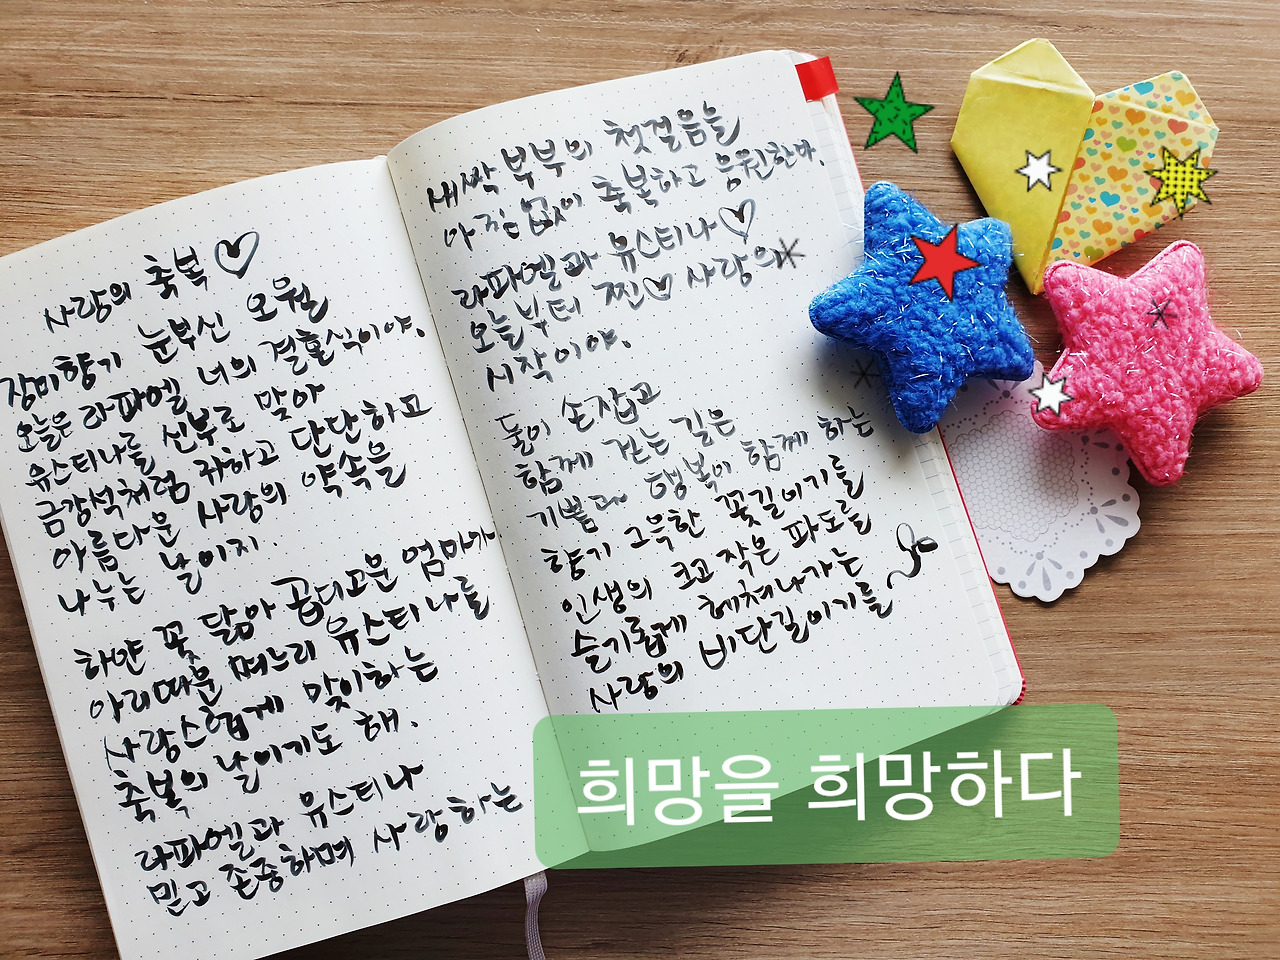 사랑의 축복♡
장미향기 눈부신 오월
오늘은 라파엘 너의 결혼식이야.
유스티나를 신부로 맞아
금강석처럼 귀하고 단단하고
아름다운 사랑의 약속을
나누는 날이지.
하얀 꽃 닮아 곱디고운 엄마가
아리따운 며느리 유스티나를
사랑스럽게 맞이하는
축복의 날이기도 해.
라파엘과 유스티나
믿고 존중하며 사랑하는
새싹 부부의 첫걸음을
아낌없이 축복하고 응원한다.
라파엘과 유스티나♡
오늘부터 찐♡ 사랑의
시작이야.
둘이 손잡고
함께 걷는 길은
기쁨과 행복이 함께 하는
향기 그윽한 꽃길이기를
인생의 크고 작은 파도를
슬기롭게 헤쳐나가는
사랑의 비단길이기를
희망을 희망하다